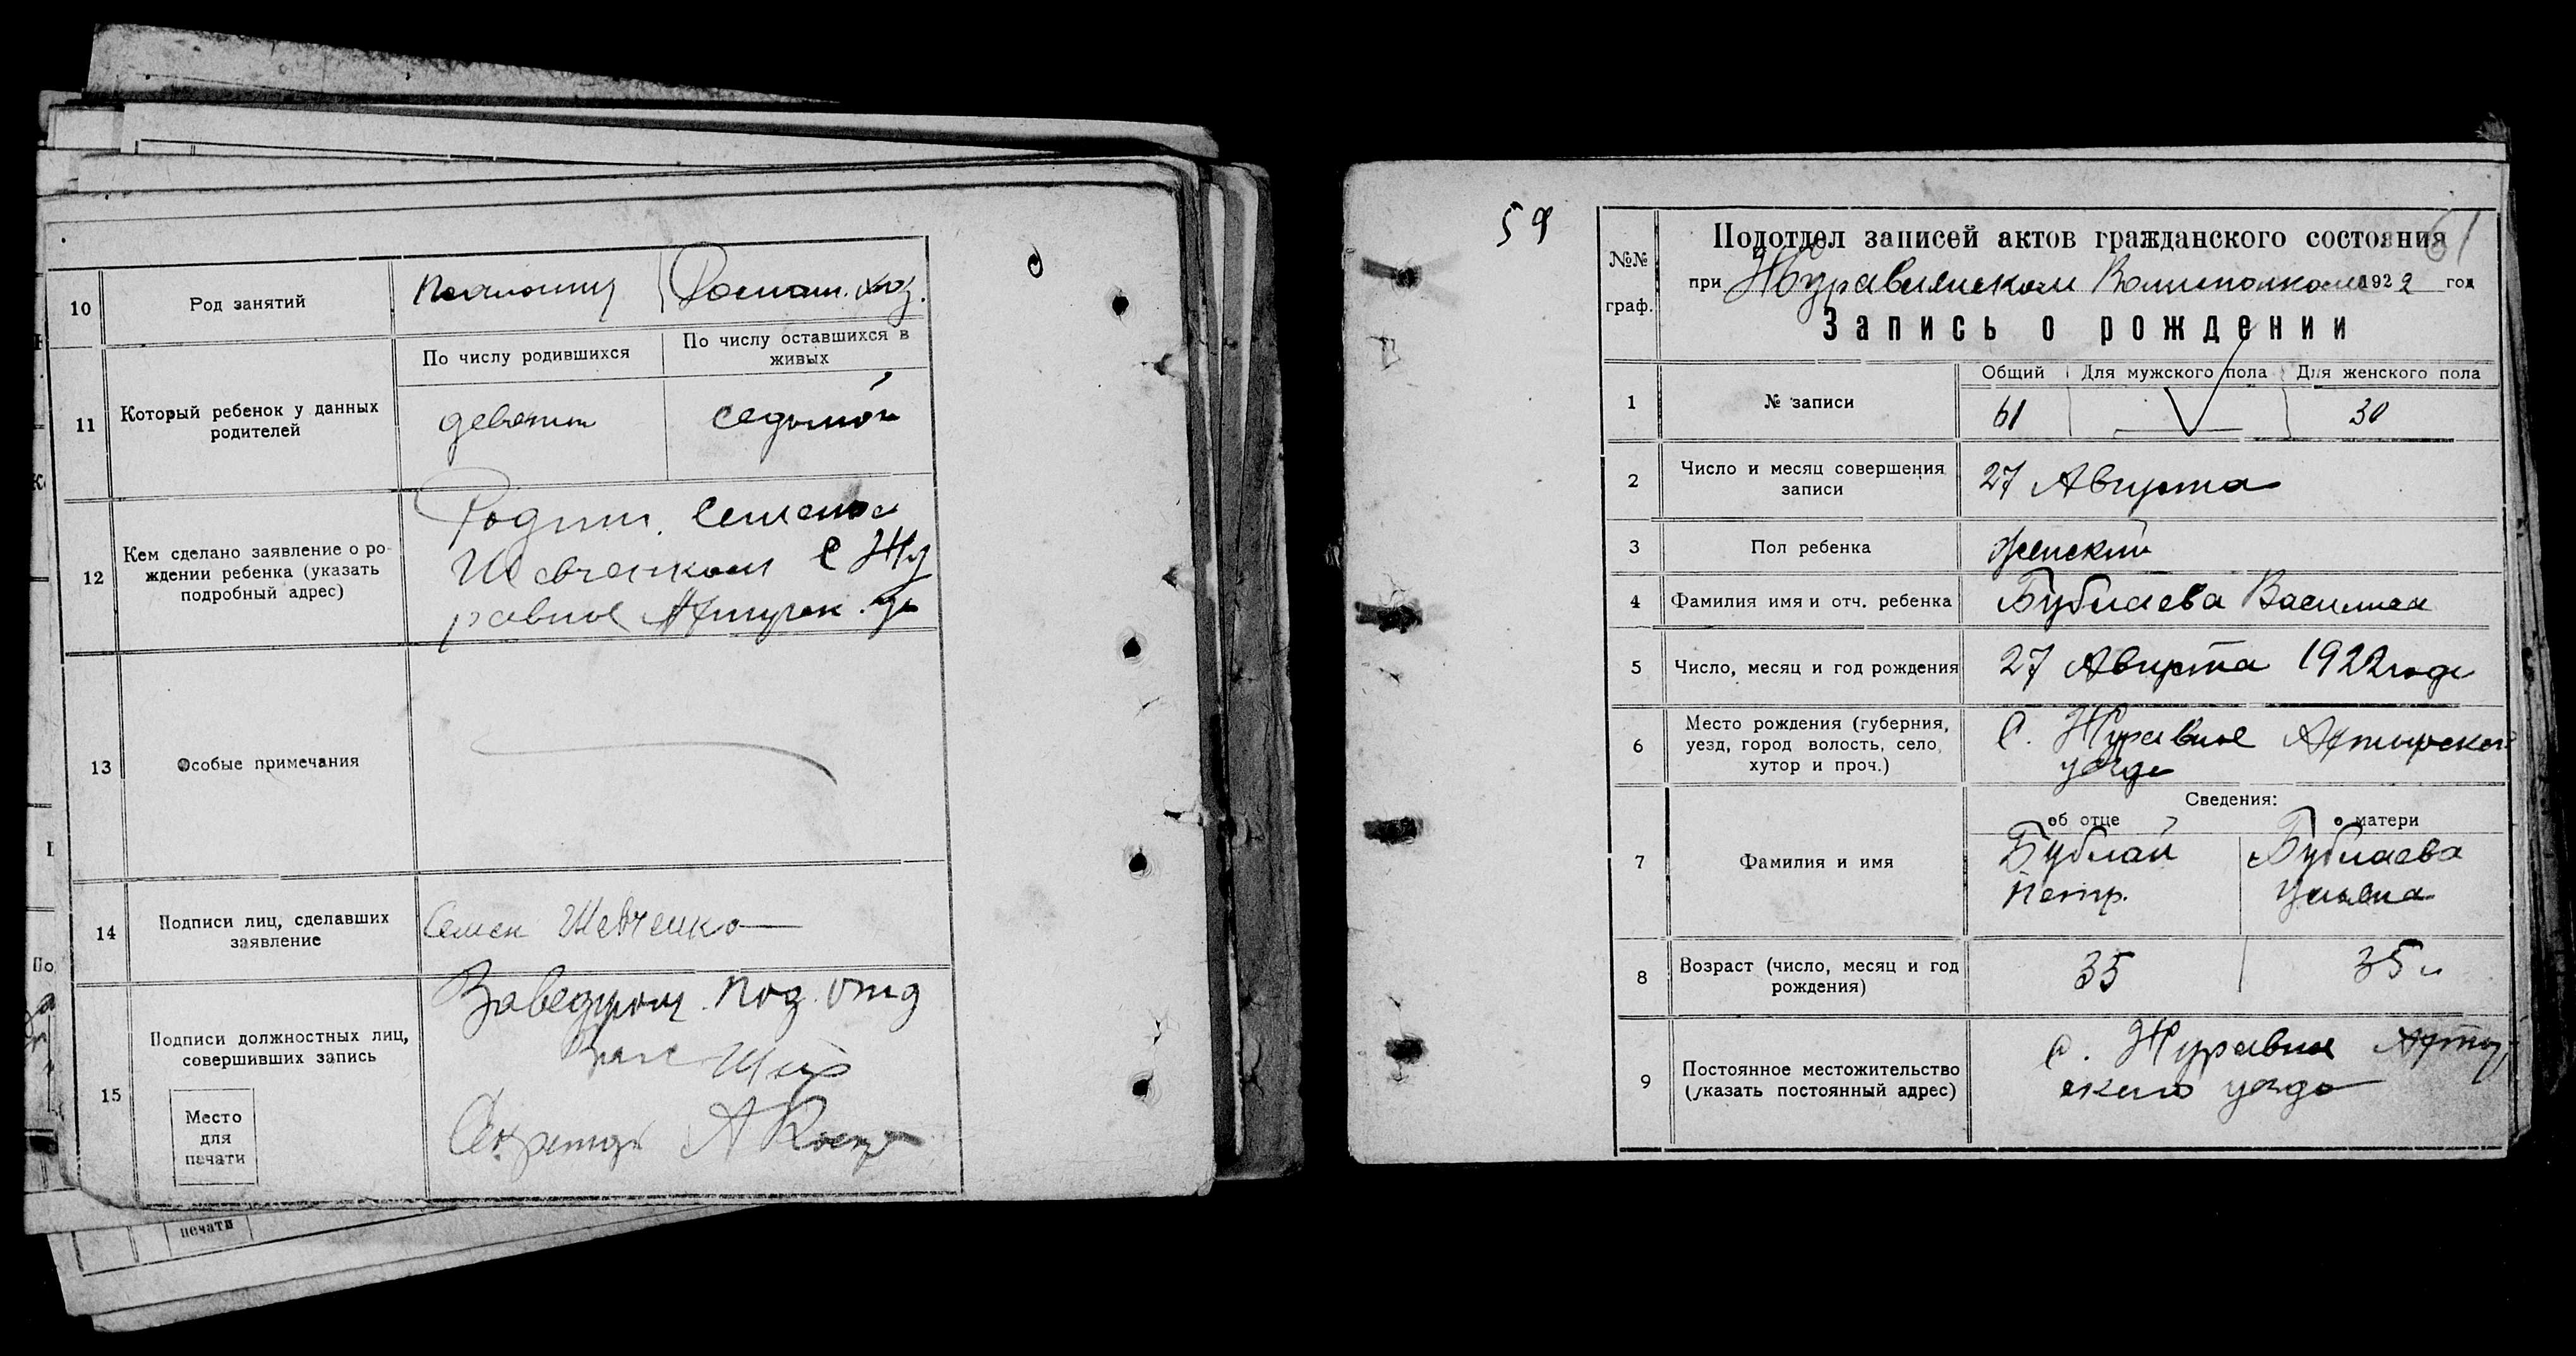 10
Род занятий
хоз.
11
Который ребенок у данных
родителей
По числу родившихся
По числу оставшихся в
живых
седьмой
12
Кем сделано заявление о ро-
ждении ребенка (указать
подробный адрес)
Родит.
Шевченком с Жу
равное
13
Особые примечания
14
Подписи лиц, сделавших
заявление
Семен Шевченко
15
Подписи должностных лиц,
совершивших запись
Место
для
печати
Заведующ. под. отд
печати
59
61
№№
граф.
Подотдел записей актов гражданского состояния
при Журавлянском Волисполкоме 1922 год
Запись о рождении
1
№ записи
Общий
Для мужского пола
Для женского пола
61
30
2
Число и месяц совершения
записи
27 Августа
3
Пол ребенка
женский
4
Фамилия имя и отч. ребенка
Бублаева
5
Число, месяц и год рождения
27 Августа 1922 года
6
Место рождения (губерния,
уезд, город волость, село,
хутор и проч.)
С. Журавное
уезда
Сведения:
об отце
о матери
7
Фамилия и имя
Бублай
Петр.
Бублаева
Ульяна
8
Возраст (число, месяц и год
рождения)
35
35
9
Постоянное местожительство
(указать постоянный адрес)
С. Журавное
ского уезда